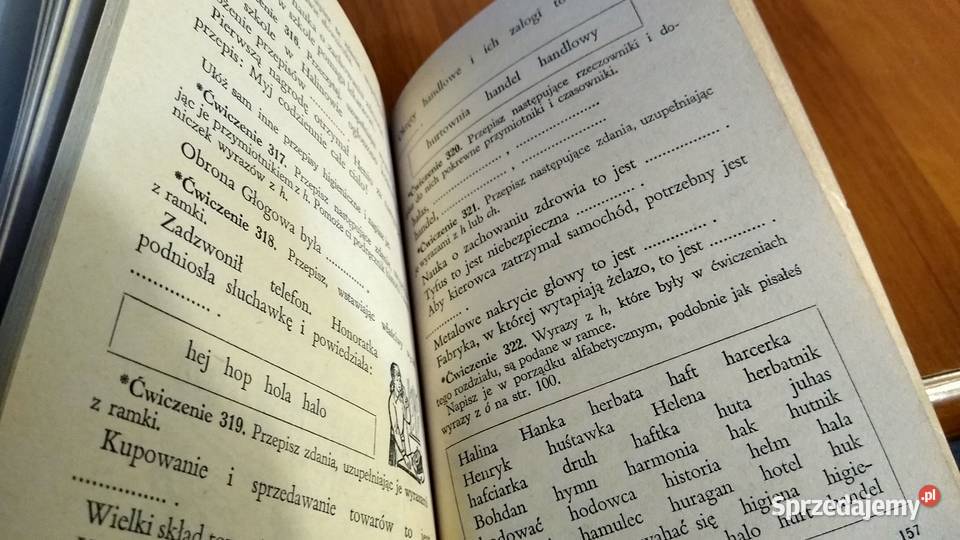 szkole w
Pierwszą nagrodę otrzymał
przepis: Myj codziennie całe ciało!
Ułóż sam inne przepisy higieniczne i napisz
*Ćwiczenie 317. Przepisz następujące
jąc je przymiotnikiem z h. Pomoże ci
niczek wyrazów z h.
Obrona Głogowa była ............... .
*Ćwiczenie 318. Przepisz, wstawiając
z ramki.
Zadzwonił telefon. Honoratka
podniosła słuchawkę i powiedziała:
............ .
hej hop hola halo
*Ćwiczenie 319. Przepisz zdania, uzupełniając je wyrazami
z ramki.
Kupowanie i sprzedawanie towarów to jest
............... .
Wielki skład
handlowe i ich załogi to
hurtownia handel handlowy
*Ćwiczenie 320. Przepisz następujące rzeczowniki i do-
do nich pokrewne przymiotniki i czasowniki.
hałas, ............... , ...............
handel, ............... , ...............
*Ćwiczenie 321. Przepisz następujące zdania, uzupełniając
wyrazami z h lub ch.
Nauka o zachowaniu zdrowia to jest ............... .
Tyfus to jest niebezpieczna ............... .
Aby kierowca zatrzymał samochód, potrzebny jest
............ .
Metalowe nakrycie głowy to jest ............ .
Fabryka, w której wytapiają żelazo, to jest ............ .
*Ćwiczenie 322. Wyrazy z h, które były w ćwiczeniach
tego rozdziału, są podane w ramce.
Napisz je w porządku alfabetycznym, podobnie jak pisałeś
wyrazy z ó na str. 100.
Halina Hanka herbata haft harcerka
Henryk huśtawka Helena herbatnik
hafciarka druh haftka huta juhas
Bohdan hymn harmonia hak hutnik
hodować hodowca historia hełm hala
hamulec huragan hotel huk
wahać się higiena higie-
halo handel
157
Sprzedajemy.pl